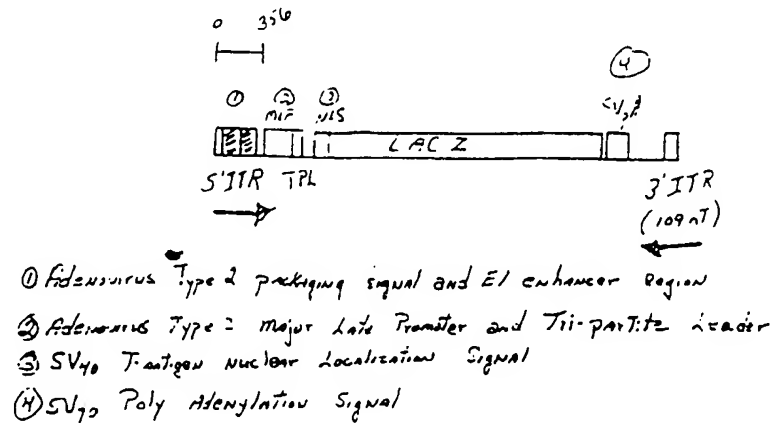 0 356
④
① ② ③
MLP NLS SV40 pA
LAC Z
5' ITR TPL 3' ITR
(109 nT)
① Adenovirus Type 2 packaging signal and E1 enhancer Region
② Adenovirus Type 2 Major Late Promoter and Tri-partite Leader
③ SV40 T-antigen Nuclear Localization Signal
④ SV40 Poly Adenylation Signal